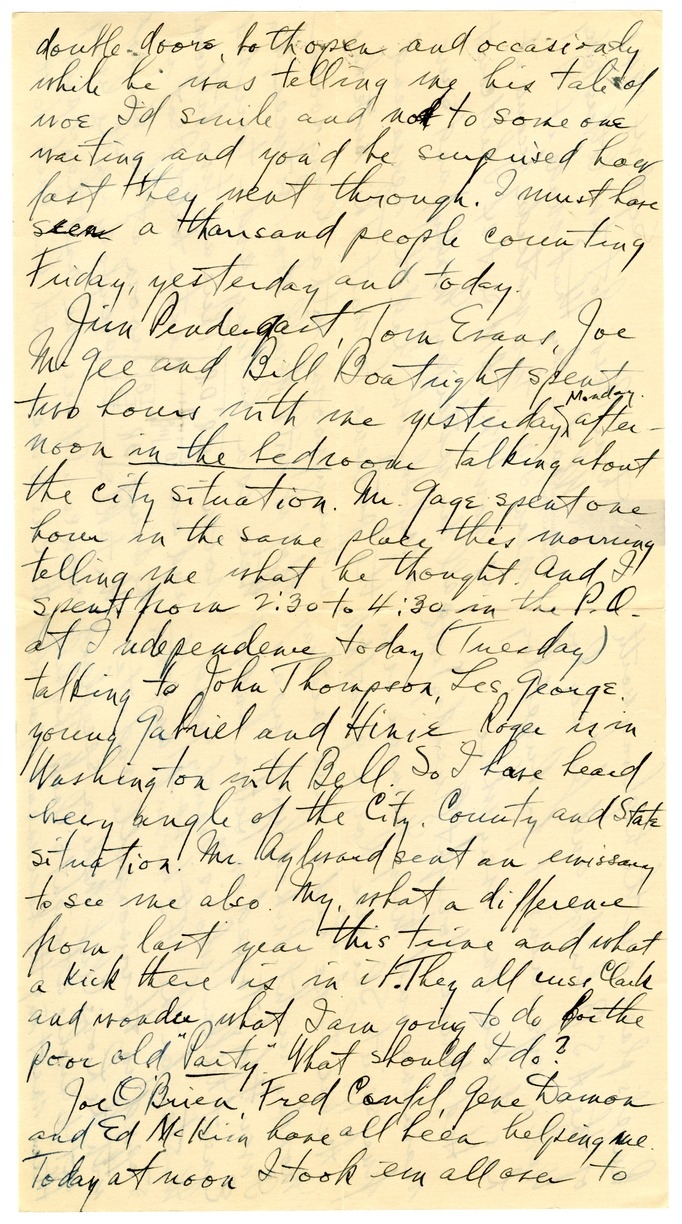 double-doors, both open and occasionly
while he was telling me his tale of
woe I'd smile and nod to someone
waiting and you'd be surprised how
fast they went through. I must have
seen a thousand people counting
Friday, yesterday and today.
Jim Pendergast, Tom Evans, Joe
McGee and Bill Boatright spent
two hours with me yesterday, Monday after-
noon in the bedroom talking about
the city situation. Mr. Gage spent one
hour in the same place this morning
telling me what he thought. And I
spent from 2:30 to 4:30 in the P.O.
at Independence today (Tuesday)
talking to John Thompson, Les George,
young Gabriel and Hinie Roger is in
Washington with Bell. So I have heard
every angle of the City, County and State
situation. Mr. Aylward sent an emissary
to see me also. My, what a difference
from last year this time and what
a kick there is in it. They all cuss Clark
and wonder what I am going to do for the
poor old "Party". What should I do?
Joe O'Brien, Fred Canfil, Gene Damon
and Ed McKim have all been helping me.
Today at noon I took em all over to